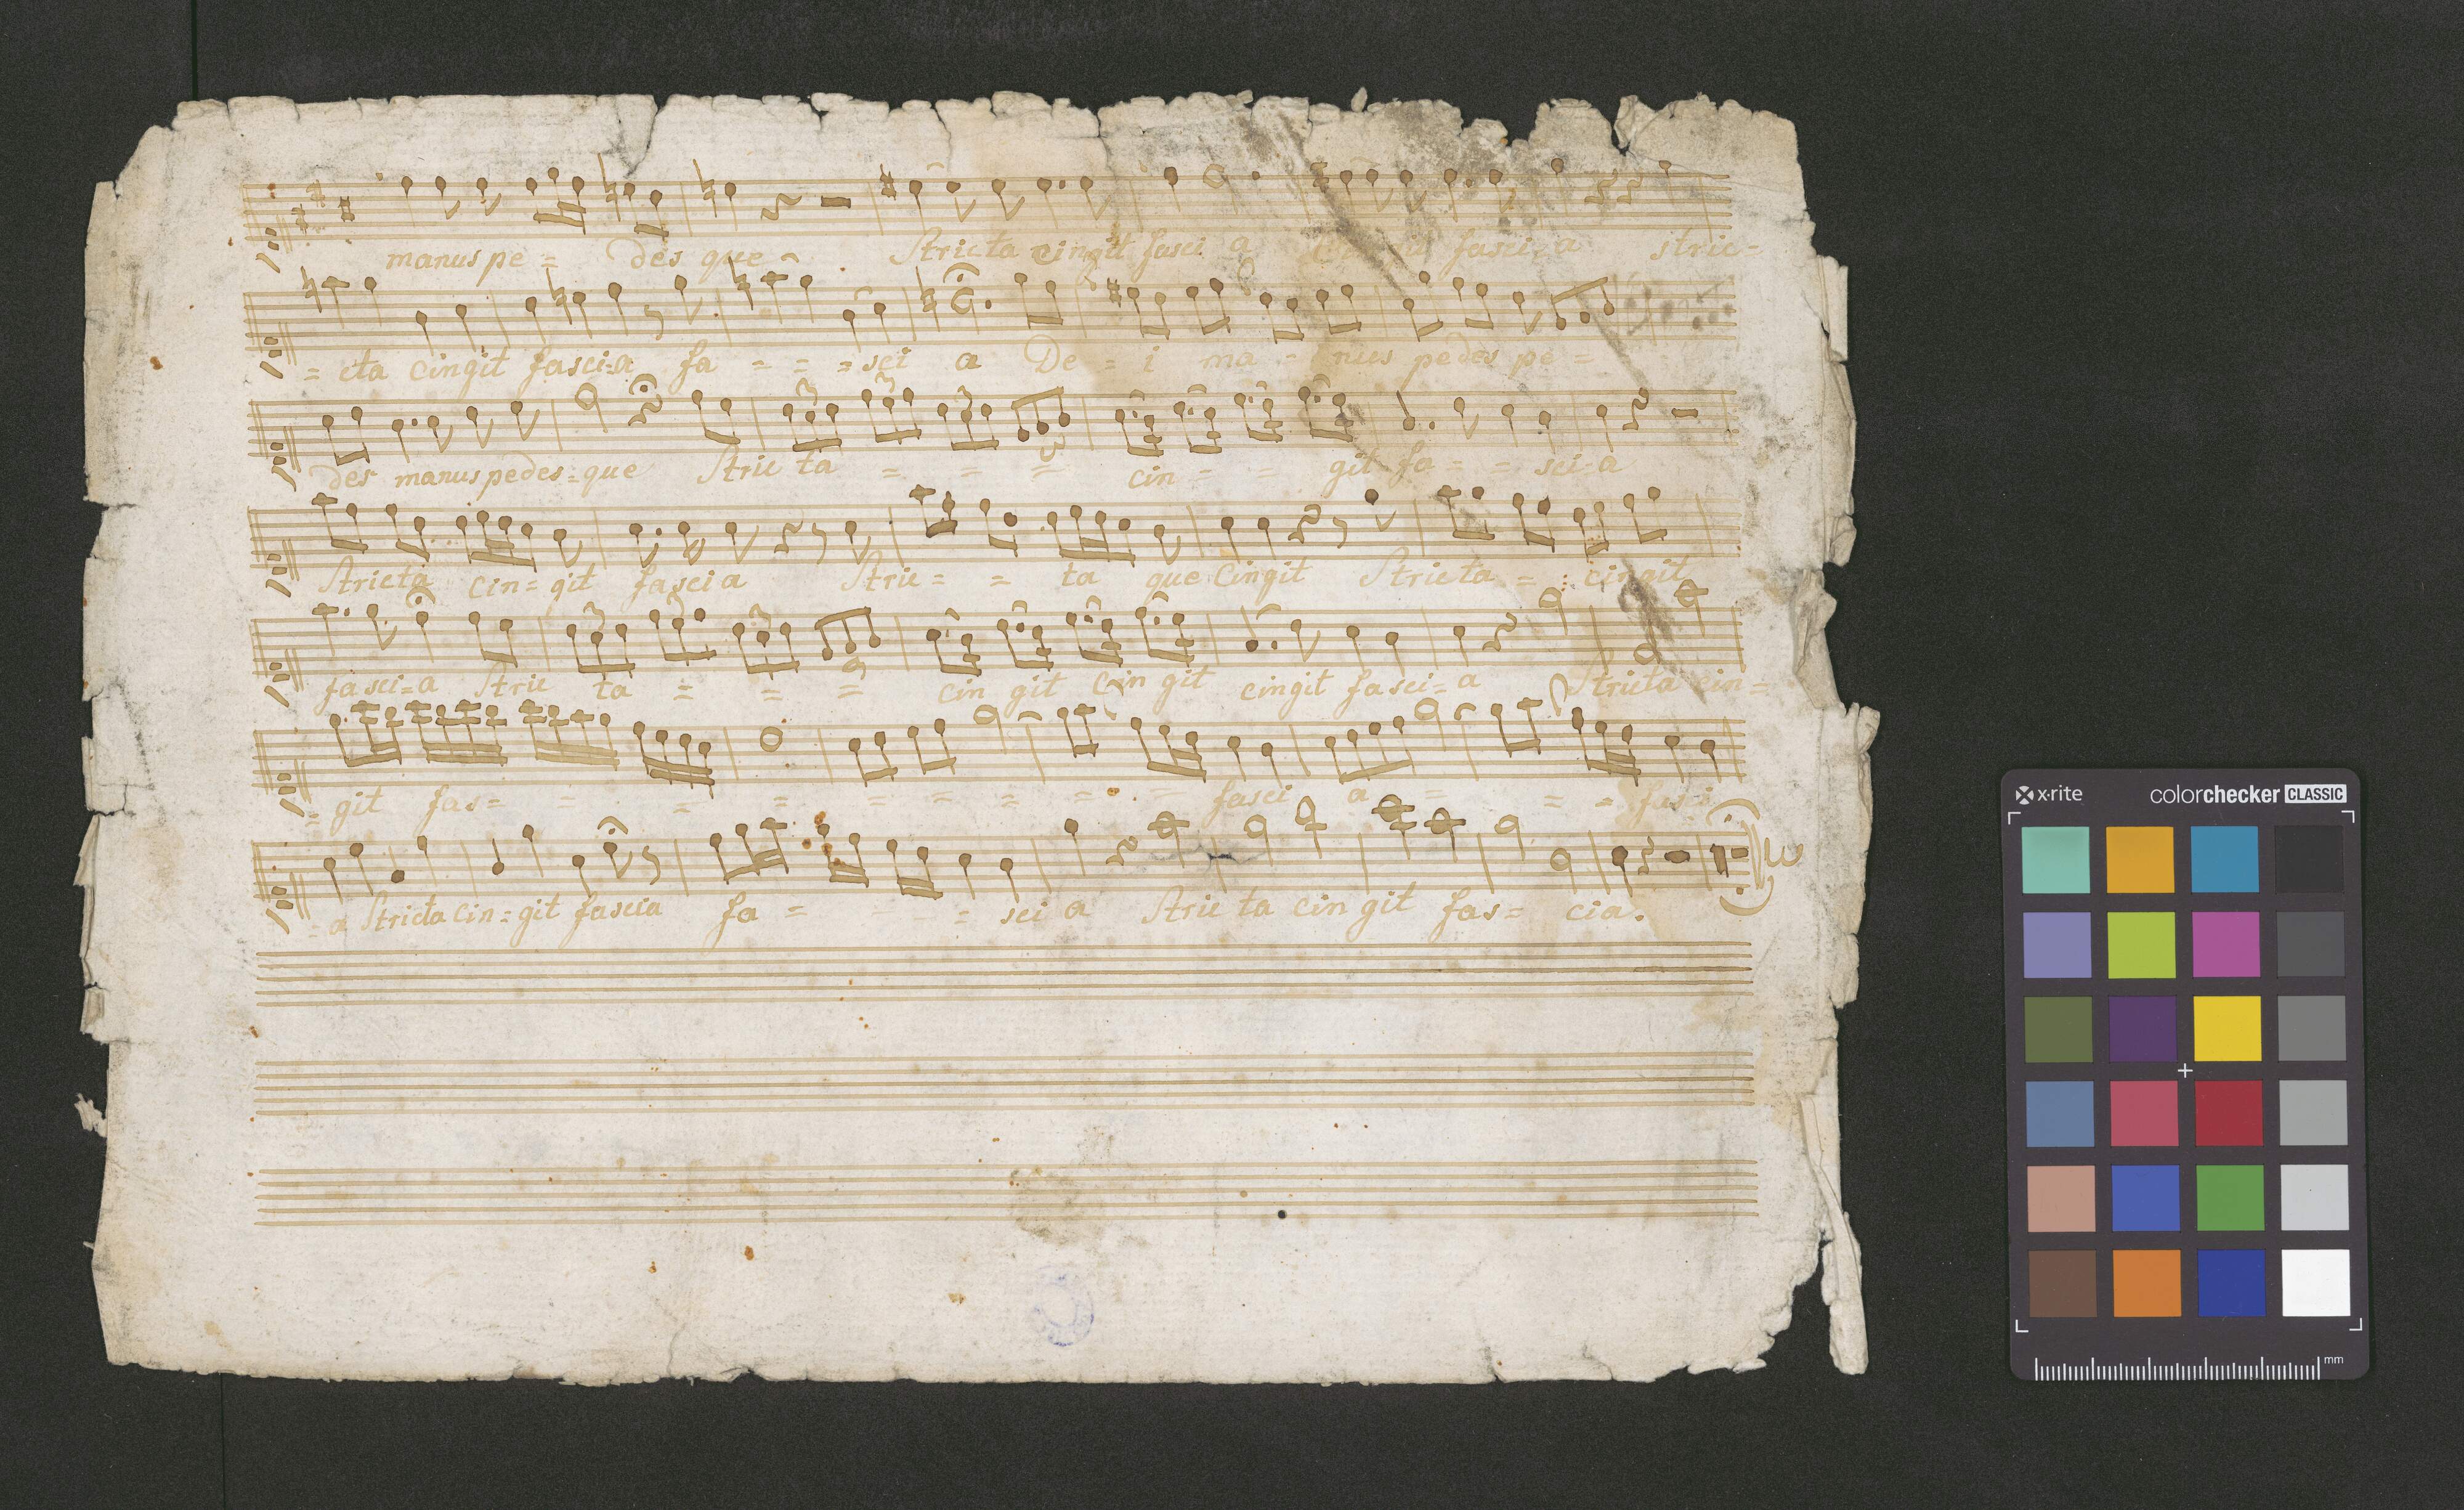 manus pe = des que Stricta cingit fasci a fasci = a stric =
= cta cingit fasci = a fa = = = sci a De = i ma = nus pedes pe =
des manus pedes = que Stric ta = = = cin = = git fa = = sci = a
Stricta cin = git fascia Stric = = ta que Cingit Stricta = cingit
fasci = a Stric ta = = = cin git cin git cingit fasci = a Stricta cin =
= git fas = = = = = = = = = fasci a = = = fasci
= a Stricta cin = git fascia fa = = sci a Stric ta cin git fas = cia.
x·rite colorchecker CLASSIC
mm